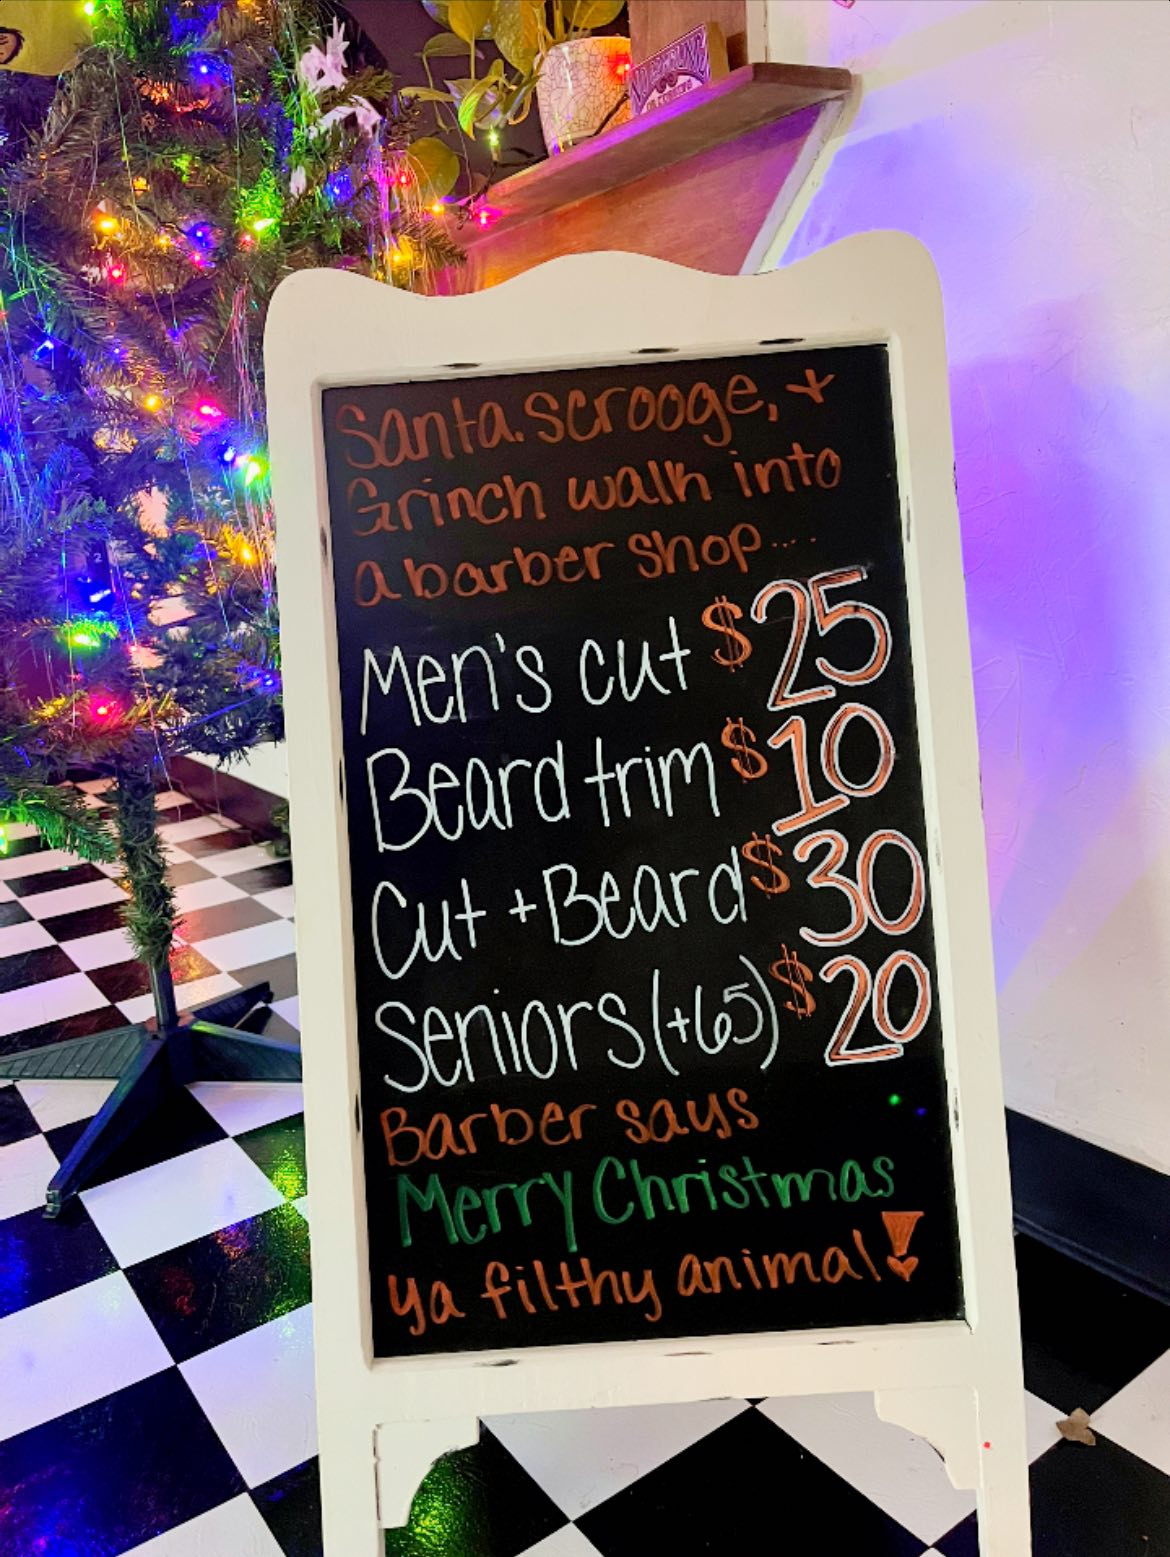 Santa. Scrooge, +
Grinch walk into
a barber shop....
Men's cut $25
Beard trim $10
Cut + Beard $30
Seniors (+65) $20
Barber says
Merry Christmas
ya filthy animal!